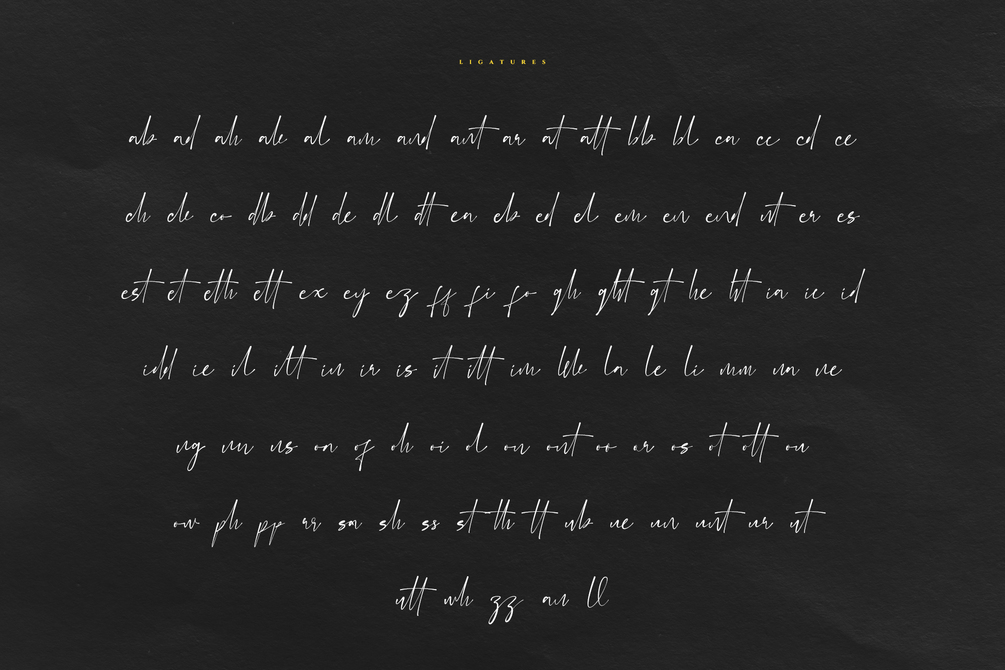 LIGATURES
ab ad ah ale al am and ant ar at att bb bl ca cc cd ce
ch cle co db dd de dl dt ea eb ed el em en end nt er es
est et eth ett ex ey ez ff fi fo gh ght gt he ht ia ic id
idd ie il ilt in ir is it itt im la le li mm na ne
ng nn ns on of oh oi ol on ont oo or os ot ott ou
ow ph pp rr sa sh ss st th tt ub ue un unt ur ut
utt wh zz an ll